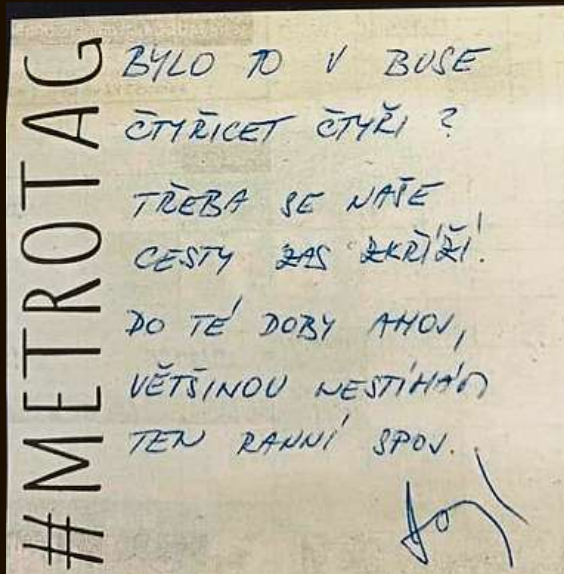 #METROTAG
BYLO TO V BUSE
ČTYŘICET ČTYŘI ?
TŘEBA SE NAŠE
CESTY ZAS ZKŘÍŽÍ.
DO TÉ DOBY AHOJ,
VĚTŠINOU NESTÍHÁM
TEN RANNÍ SPOJ.